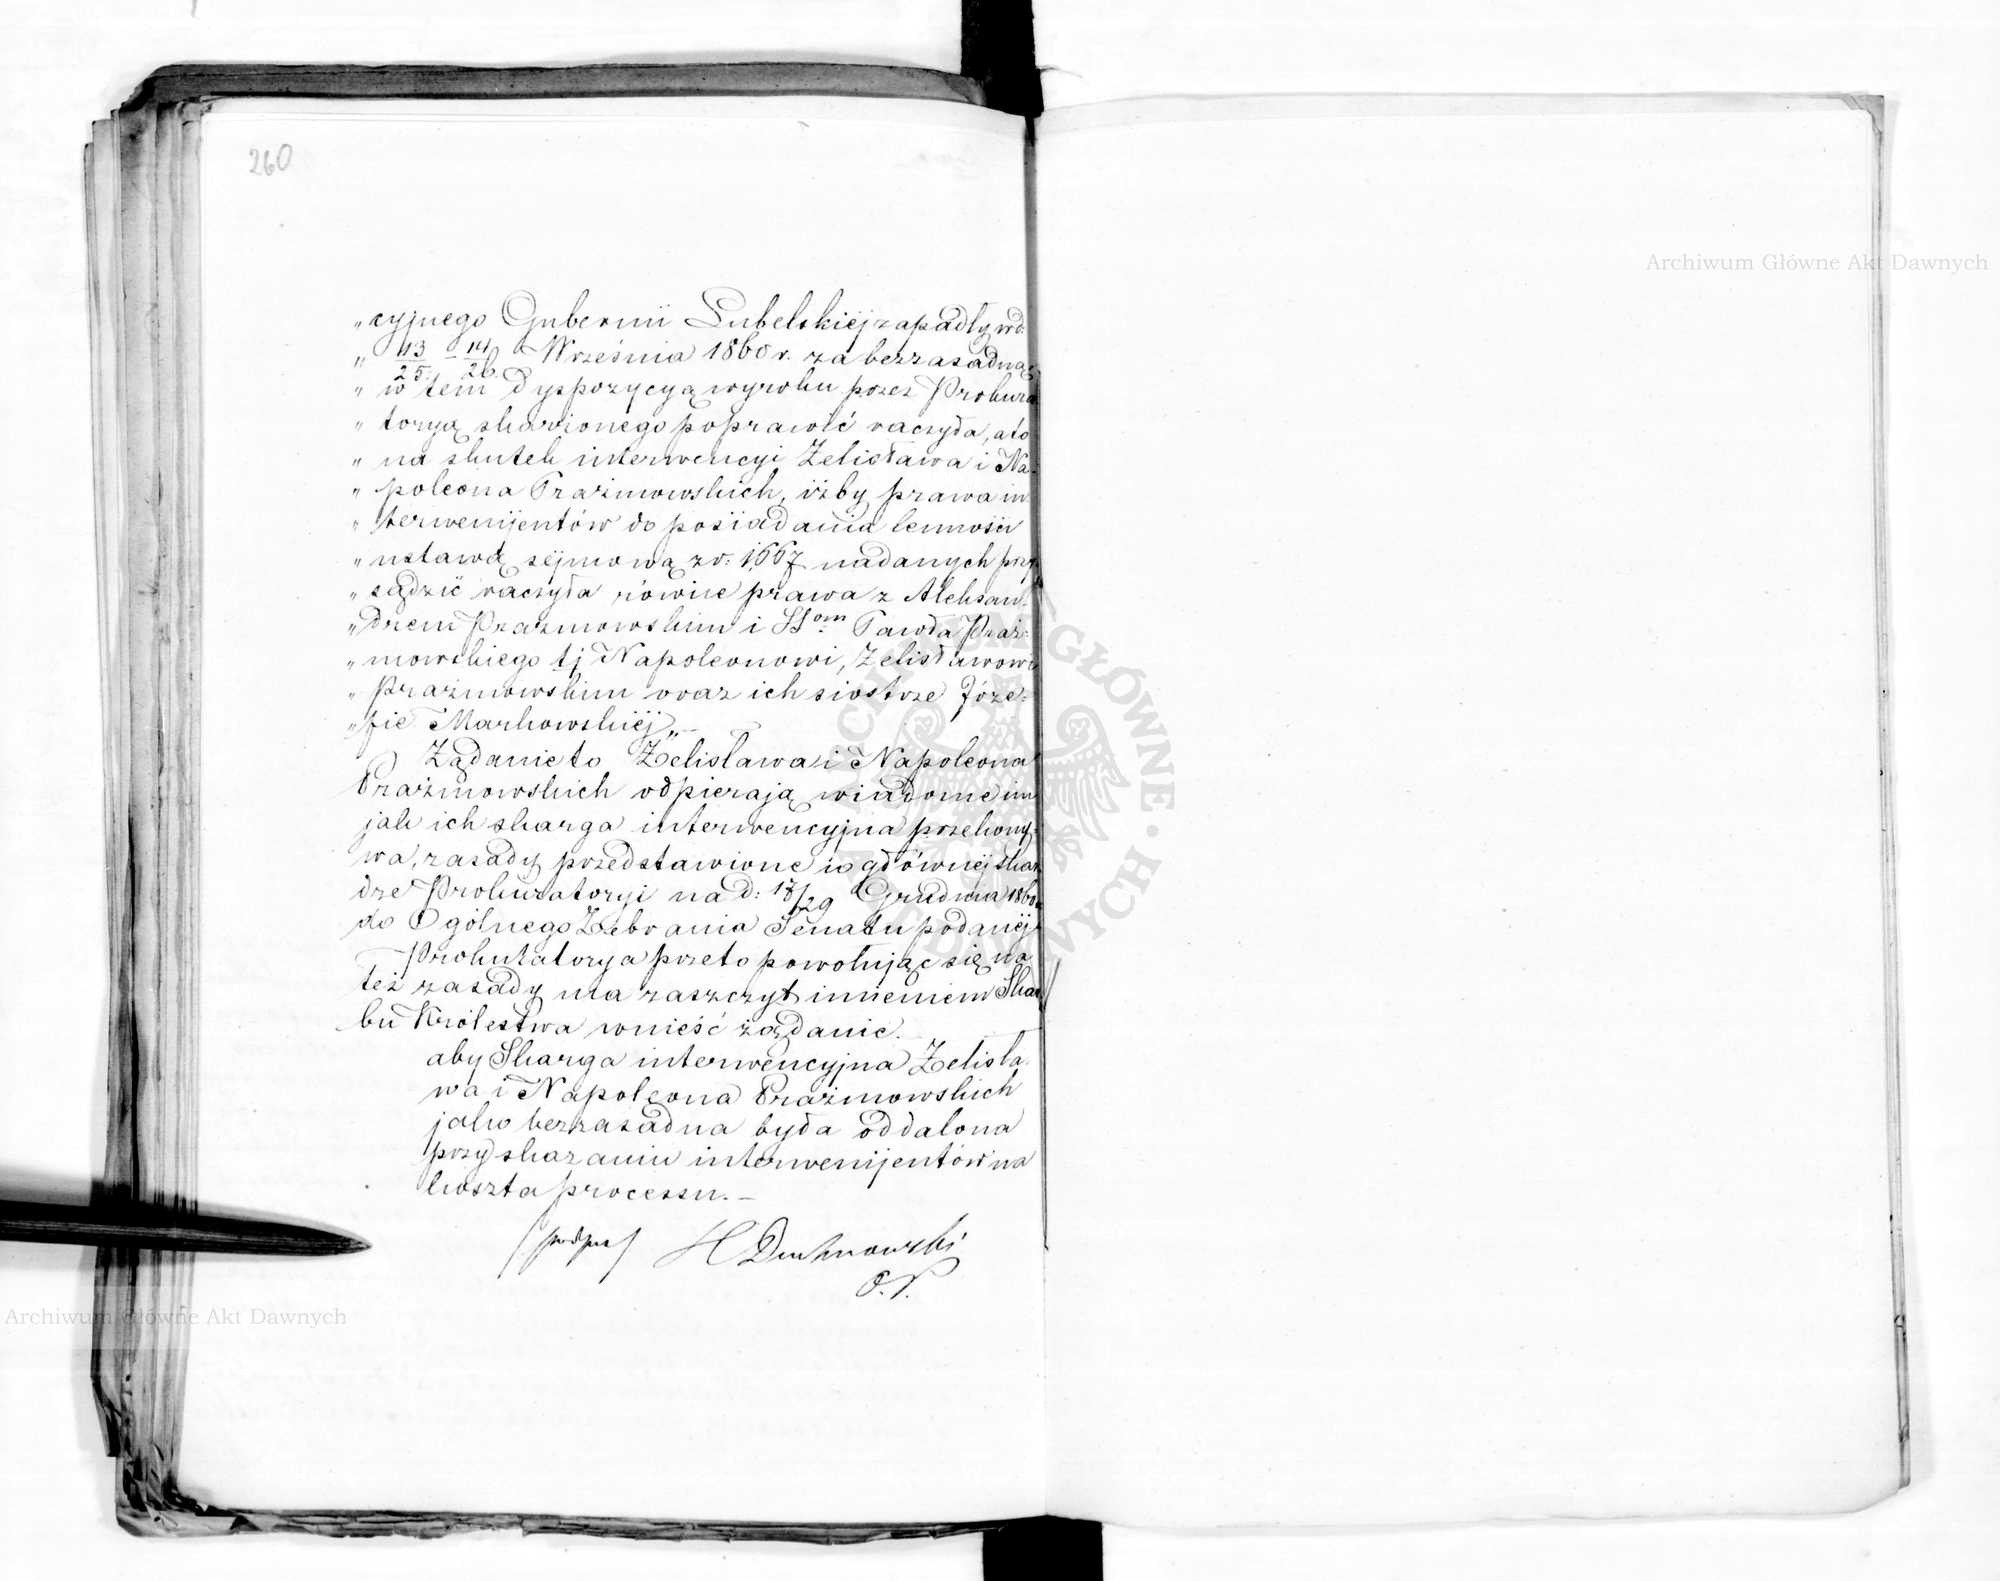 260
„cyjnego Gubernii Lubelskiéj zapadły w d:
„ 13/25 – 14/26 Września 1860 r. za bezzasadną
„ w tem dyspozycyą wyroku przez Prokura
„ toryą skarżonego poprawić raczyła, a to
„ na skutek interwencyi Żelisława i Na-
„ poleona Prażmowskich, iżby prawa in
„ terwenijentów do posiadania lenności
„ ustawą sejmową z r: 1667 nadanych przy
„ sądzić raczyła równie prawa z Aleksan-
„ drem Prażmowskim i SSom Pawła Praż:
„ mowskiego tj Napoleonowi, Żelisławowi
„ Prażmowskim oraz ich siostrze Józe=
„ fie Markowskiéj„ –
Żądanie to Żelisława i Napoleona
Prażmowskich odpierają wiadome im
jak ich skarga interwencyjna przekony-
wa, zasady przedstawione w głównéj skar
dze Prokuratoryi na d: 17/29 Grudnia 1860
do Ogólnego Zebrania Senatu podanéj
Prokuratorya przeto powołując się na
też zasady ma zaszczyt imieniem Skar
bu Królestwa wnieść żądanie.
aby Skarga interwencyjna Żelisła-
wa i Napoleona Prażmowskich
jako bezzasadna była oddalona
przy skazaniu interwenijentów na
koszta processu. –
/podpis/ H Duchnowski
O. P.
Archiwum Główne Akt Dawnych
Archiwum Główne Akt Dawnych
ARCHIWUM GŁÓWNE AKT DAWNYCH